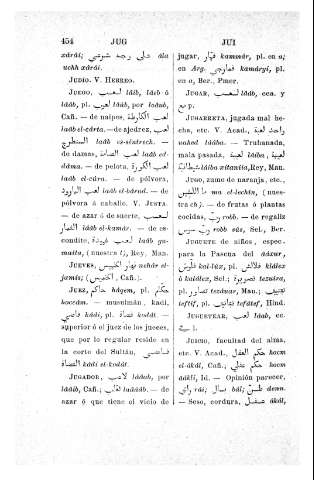 454 JUG
JUI
xârâi; ála
uchh xârâi.
JUDIO. V. HEBREO.
JUEGO, لعب láâb, láeb ó
lââb, pl. لعيب láâb, por laâub,
Cañ. — de naipes, لعب الكارطة
laâb el-cárta. — de ajedrez, لعب
الستطرج laâb es-sintrech. —
de damas, لعب الضامة laâb ed-
dáma. — de pelota, لعب الكورة
laâb el-cúra. — de pólvora
لعب البارود laâb el-bárud. — de
pólvora á caballo. V. JUNTA.
— de azar ó de suerte, لعب
القمار láâb el-kamár. — de es-
condite, laâb gu-
maita, (nuestra t), Rey, Man.
JUEVES, نهار الخميس nehár el-
jamis; الخميس, Cañ.
JUEZ, حاكم háqem, pl. حكام
hoccám. — musulman, kadi,
قاضي kádi, pl. قضاة kodát. —
superior ó el juez de los jueces,
que por lo regular reside en
la corte del Sultán, قاضي
القضاة kádi el-kodát.
JUGADOR, لاعب láâab, por
láâib, Cañ.; لعاب luâáâb. — de
azar ó que tiene el vicio de
jugar, قمار kammár, pl. en a;
en Arg. قمارجي kamáryi, pl.
en a, Ber., Pmer.
JUGAR, لعب lââb, cca. y
مع p.
JUGARRETA, jugada mal he-
cha, etc. V. Acad., واحد لعبة
uahed láâba. — Truhanada,
mala pasada, لعبة láiba, لعبة
شيطانية láâba xitania, Rey, Man.
JUGO, zumo de naranja, etc.,
ما الليتشين ma el-lechin, (nues-
tra ch). — de frutas ó plantas
cocidas, رب robb. — de regaliz
رب سوس robb sûs, Sel., Ber.
JUGUETE de niños, espec.
para la Pascua del âáxur,
kal-lúx, pl. قلالش kláléx
ó kaláléx, Sel.; تصويرة tezuira,
pl. تصاور tezáuar, Man.; تفتيف
teftíf, pl. تفاتيف tefátef, Hind.
JUGUETEAR, لعب laâb, cc.
ب.
JUICIO, facultad del alma,
etc. V. Acad., حكم العقل hocm
el-âkál, Cañ., حكم عقلي hocm
aâkli, Id. — Opinión parecer,
رأي rái; بال bál; ظن denn.
— Seso, cordura, عقل âkál,